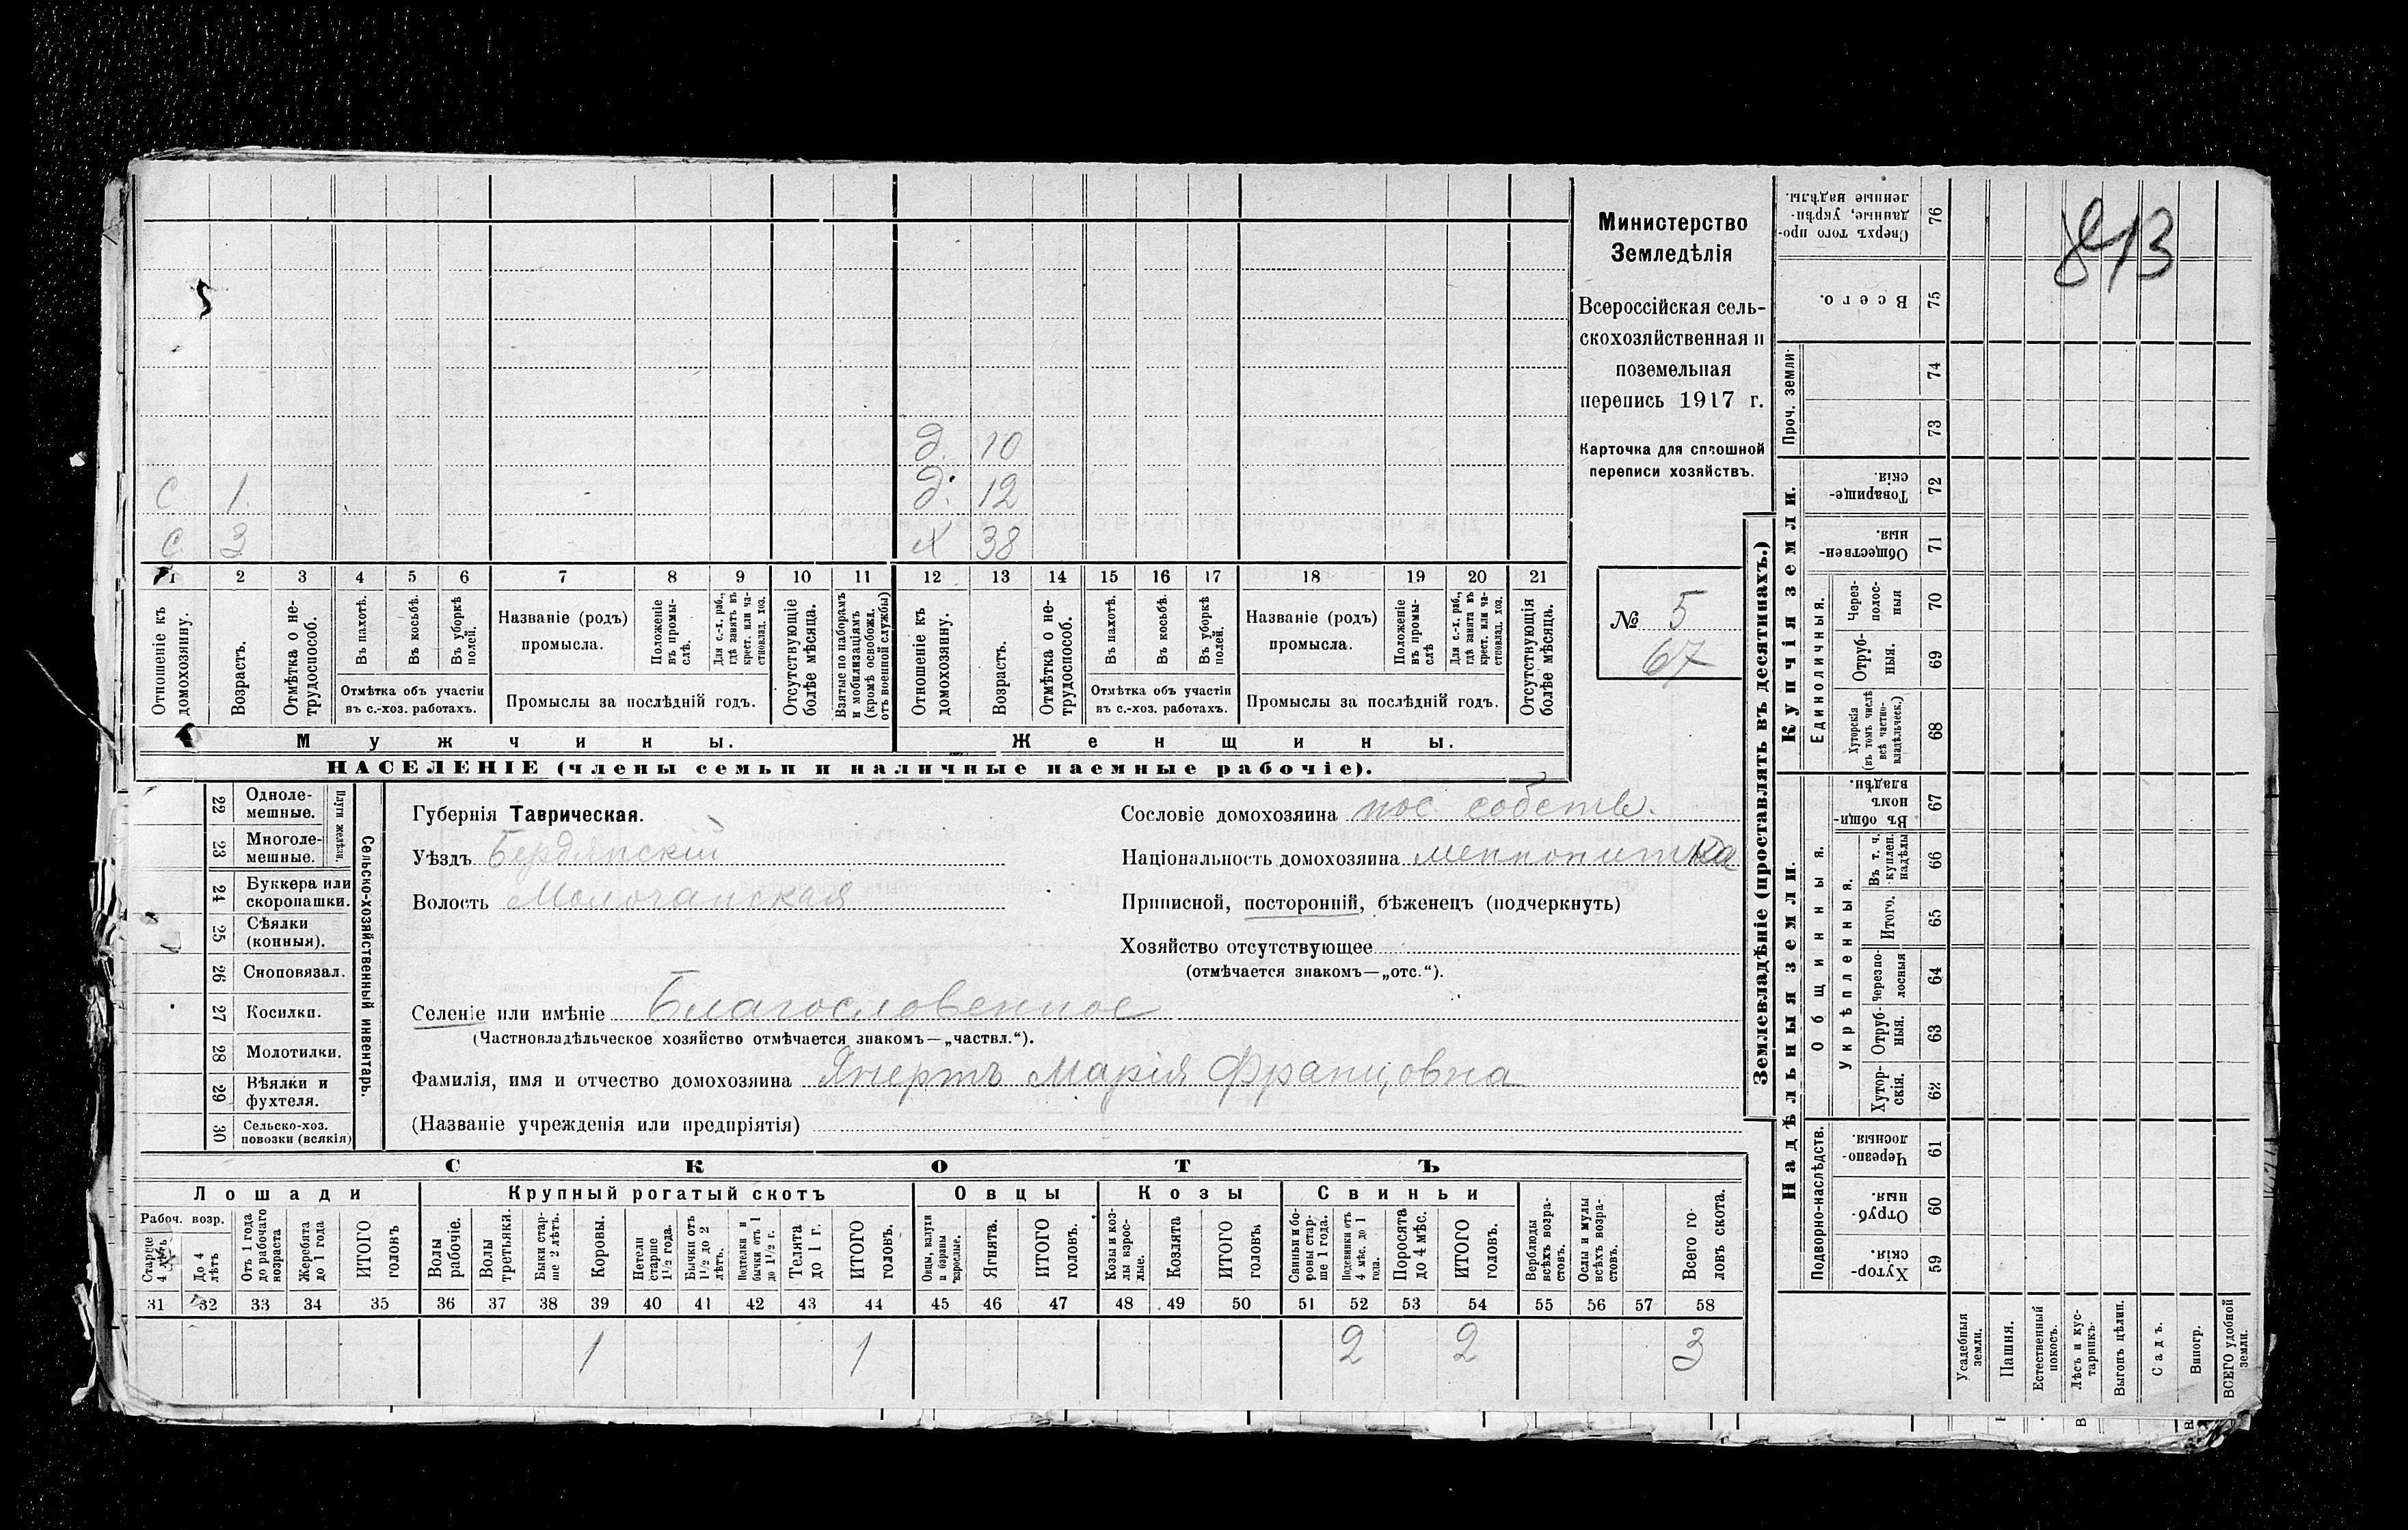 813
Министерство
Земледѣлія
Всероссійская сель-
скохозяйственная и
поземельная
перепись 1917 г.
Карточка для сплошной
переписи хозяйствъ.
№ 5
67
д. 10
С 1. д. 12
С. 3 Х 38
1 2 3 4 5 6 7 8 9 10 11 12 13 14 15 16 17 18 19 20 21
Отношеніе къ домохозяину.
Возрастъ.
Отмѣтка о не-трудоспособ.
Въ пахотѣ.
Въ косьбѣ.
Въ уборкѣ полей.
Отмѣтка объ участіи
въ с.-хоз. работахъ.
Названіе (родъ)
промысла.
Положеніе въ промы-слѣ.
Для с.-х. раб., гдѣ занятъ въ крест. или ча-стновлад. хоз.
Промыслы за послѣдній годъ.
Отсутствующіе болѣе мѣсяца.
Взятые по наборамъ и мобилизаціямъ (кромѣ освобожд. отъ военной службы)
Отношеніе къ домохозяину.
Возрастъ.
Отмѣтка о не-трудоспособ.
Въ пахотѣ.
Въ косьбѣ.
Въ уборкѣ полей.
Отмѣтка объ участіи
въ с.-хоз. работахъ.
Названіе (родъ)
промысла.
Положеніе въ промы-слѣ
Для с.-х. раб., гдѣ занята въ крест. или ча-стновлад. хоз.
Промыслы за послѣдній годъ.
Отсутствующія болѣе мѣсяца.
Мужчины.
Женщины.
НАСЕЛЕНІЕ (члены семьи и наличные наемные рабочіе).
22 Одноле-мешные.
23 Многоле-мешные.
Плуги желѣзн.
24 Буккера или скоропашки.
25 Сѣялки (конныя).
26 Сноповязал.
27 Косилки.
28 Молотилки.
29 Вѣялки и фухтеля.
30 Сельско-хоз. повозки (всякія)
Сельско-хозяйственный инвентарь.
Губернія Таврическая.
Уѣздъ Бердянскій
Волость Молочанская
Сословіе домохозяина пос. собств.
Національность домохозяина меннонитка
Приписной, посторонній, бѣженецъ (подчеркнуть)
Хозяйство отсутствующее
(отмѣчается знакомъ—„отс.“).
Селеніе или имѣніе Благословенное
(Частновладѣльческое хозяйство отмѣчается знакомъ—„частвл.“).
Фамилія, имя и отчество домохозяина Янертъ Марія Францовна
(Названіе учрежденія или предпріятія)
СКОТЪ
Лошади
Крупный рогатый скотъ
Овцы
Козы
Свиньи
Рабоч. возр.
Старше 4 лѣтъ
До 4 лѣтъ
Отъ 1 года до рабочаго возраста
Жеребята до 1 года
ИТОГО головъ
Волы рабочіе.
Волы третьяки.
Быки стар-ше 2 лѣтъ.
Коровы.
Нетели старше 1½ года.
Бычки отъ 1½ до 2 лѣтъ.
Подтелки и бычки отъ 1 до 1½ г.
Телята до 1 г.
ИТОГО головъ.
Овцы, валухи и бараны взрослые.
Ягнята.
ИТОГО головъ.
Козы и коз-лы взрос-лые.
Козлята
ИТОГО головъ.
Свиньи и бо-ровы стар-ше 1 года.
Подсвинки отъ 4 мѣс. до 1 года.
Поросята до 4 мѣс.
ИТОГО головъ.
Верблюды всѣхъ возра-стовъ.
Ослы и мулы всѣхъ возра-стовъ.
Всего го-ловъ скота.
31 32 33 34 35 36 37 38 39 40 41 42 43 44 45 46 47 48 49 50 51 52 53 54 55 56 57 58
1 1 2 2 3
Землевладѣніе (проставлять въ десятинахъ.)
Купчія земли.
Надѣльныя земли.
Сверхъ того про-данные, укрѣп-ленные надѣлы. 76
Всего. 75
Проч. земли. 74
73
Товарище-скія. 72
Обществен-ныя. 71
Единоличныя.
Через-полос-ныя 70
Отруб-ныя. 69
Хуторскія (въ томъ числѣ всѣ частно-владѣльческ.) 68
Общинныя.
Въ общи-номъ владѣн. 67
Укрѣпленныя.
Въ т. ч. куплен. надѣлы 66
Итого. 65
Черезпо-лосныя 64
Отруб-ныя. 63
Хутор-скія. 62
Подворно-наслѣдств.
Черезпо-лосныя. 61
Отруб-ныя. 60
Хутор-скія. 59
Усадебныя земли.
Пашня.
Естественный покосъ.
Лѣсъ и кус-тарникъ.
Выгонъ цѣлин.
Садъ.
Виногр.
ВСЕГО удобной земли.